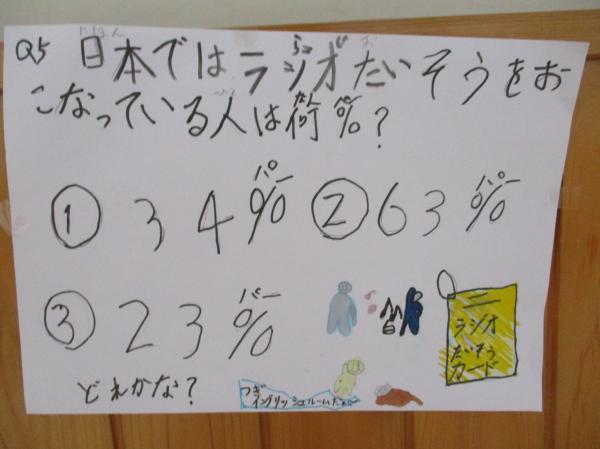 Q5 日本ではラジオたいそうをお
こなっている人は何%?
① 34% ② 63%
③ 23%
どれかな?
ラジオ
たいそう
カード
つぎ
イングリッシュルームだよ